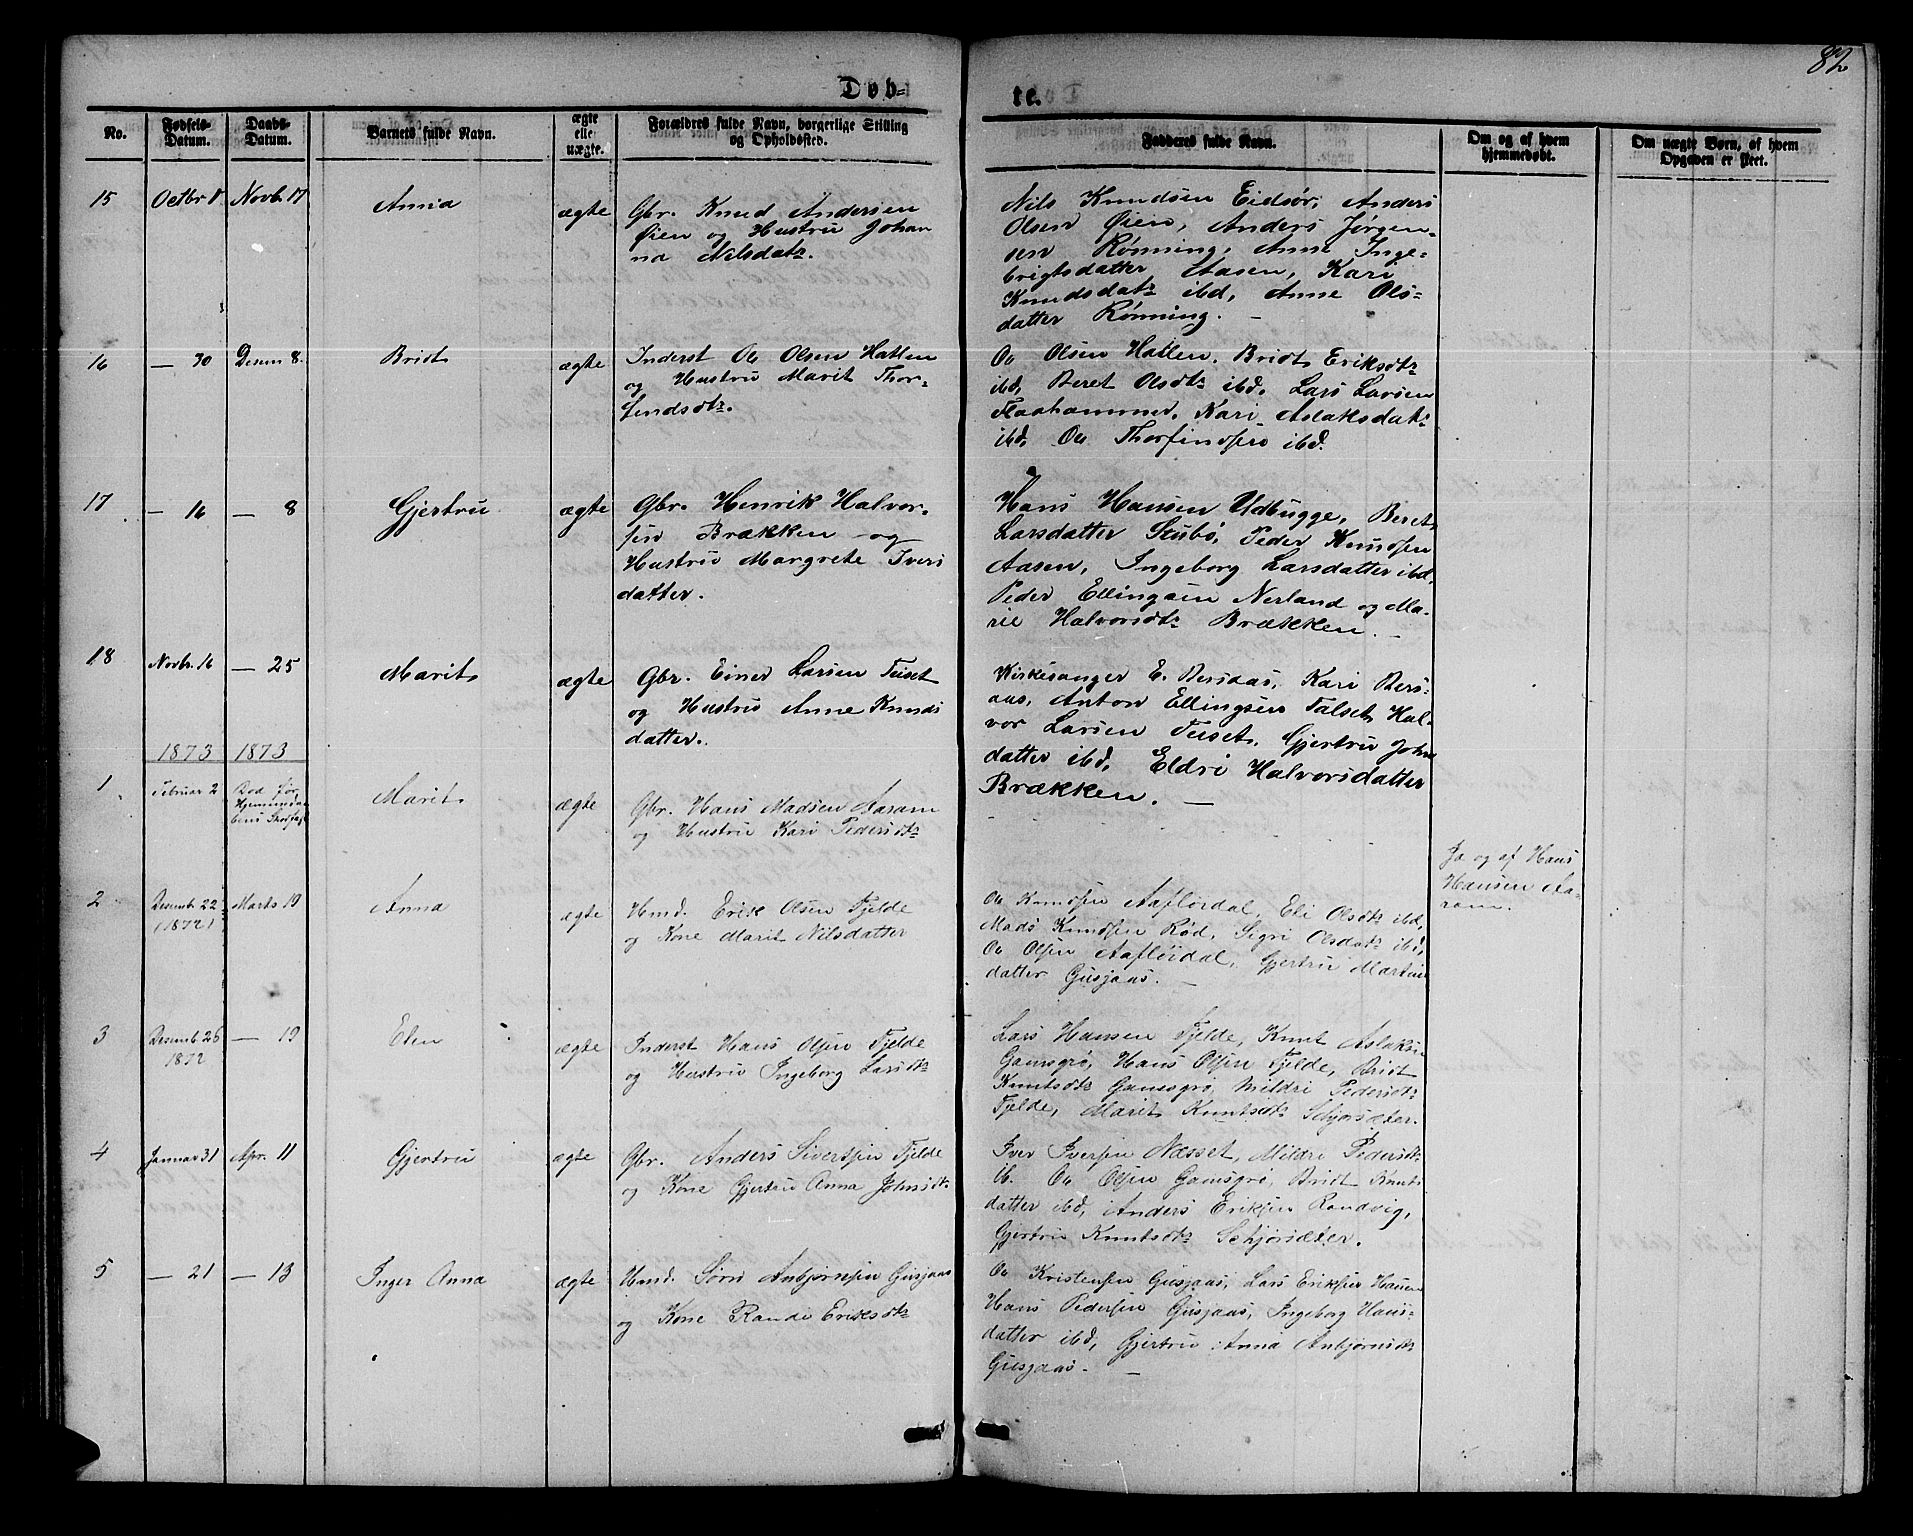 82
Døb-
te.
No.
Fødsels-
Datum.
Daabs-
Datum.
Barnets fulde Navn.
ægte
elle
uægte.
Forældres fulde Navn, borgerlige Stilling
og Opholdssted.
Fadderes fulde Navn.
Om og af hvem
hjemmedøbt.
Om uægte Børn, af hvem
Opgaven er skeet.
15
Octbr 8
Novb. 17
Anna
ægte
Gbr. Knud Andersen
Øien og Hustru Johan
na Nilsdatr.
Nils Knudsen Eidsør, Anders
Olsen Øien, Anders Jørgen-
sen Rønning, Anne Inge-
brigtsdatter Aasen, Kari
Knudsdatr ibd, Anne Ols-
datter Rønning.
16
— 30
Desem 8.
Bridt
ægte
Inderst Ole Olsen Hatlen
og Hustru Marit Thor-
findsdtr.
Ole Olsen Hatlen. Bridt Eriksdtr
ibd, Beret Olsdtr ibd, Lars Larsen
Flaahammer, Kari Aslaksdatr
ibd, Ole Thorfindsen ibd.
17
— 16
— 8
Gjertru
ægte
Gbr. Henrik Halvor-
sen Brækken og
Hustru Margrete Ivers
datter.
Hans Hansen Udbugge, Beret
Larsdatter Stubø, Peder Knudsen
Aasen, Ingeborg Larsdatter ibd.
Peder Ellingsen Nerland og Ma-
rie Halvorsdtr Brækken. —
18
Novbr. 16
— 25
Marit
ægte
Gbr. Einer Larsen Teiset
og Hustru Anne Knuds
datter.
Kirkesanger E. Bersaas, Kari Bers-
aas, Anton Ellingsen Talset, Hal-
vor Larsen Teiset, Gjertru John
datter ibd, Eldri Halvorsdatter
Brækken. —
1873
1873
1
Februar 2
Død før
Marit
ægte
Gbr. Hans Madsen Aaram
og Hustru Kari Pedersdtr
Ja og af Hans
Hansen Aa-
ram.
2
Desemb. 22
(1872)
Marts 19
Anna
ægte
Hmd. Erik Olsen Fjelde
og Kone Marit Nilsdatter
Ole Knudsen Aafløidal, Eli Olsdtr ibd,
Mads Knudsen Rød, Sigri Olsdatr ibd,
Ole Olsen Aafløidal, Gjertru Martins
datter Gusjaas. —
3
Desemb 26
1872
— 19
Elen
ægte
Inderst Hans Olsen Fjelde
og Hustru Ingeborg Larsdtr
Lars Hansen Fjelde, Knut Aslaksen
Gamsgrø, Hans Olsen Fjelde, Bridt
Knutsdtr Gamsgrø, Mildri Pedersdtr
Fjelde, Marit Knutsdtr Schjorsæter.
4
Januar 31
Apr. 11
Gjertru
ægte
Gbr. Anders Sivertsen Fjelde
og Kone Gjertru Anna Johnsdtr
Iver Iversen Næsset, Mildri Pedersdtr
ib. Ole Olsen Gamsgrø, Bridt Knuts
datter ibd, Anders Eriksen Randvig,
Gjertru Knutsdtr Schjorsæter.
5
— 21
— 13
Inger Anna
ægte
Hmd. Søren Anbjørnsen Gusjaas
og Kone Randi Eriksdtr
Ole Kristensen Gusjaas, Lars Eriksen Hauen
Hans Pedersen Gusjaas, Ingeborg Hans-
datter ibd, Gjertru Anna Anbjørnsdtr
Gusjaas. —